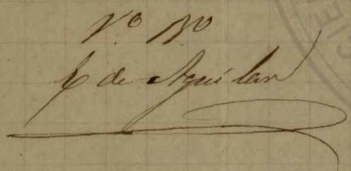 Vº Bº
E de Aguilar